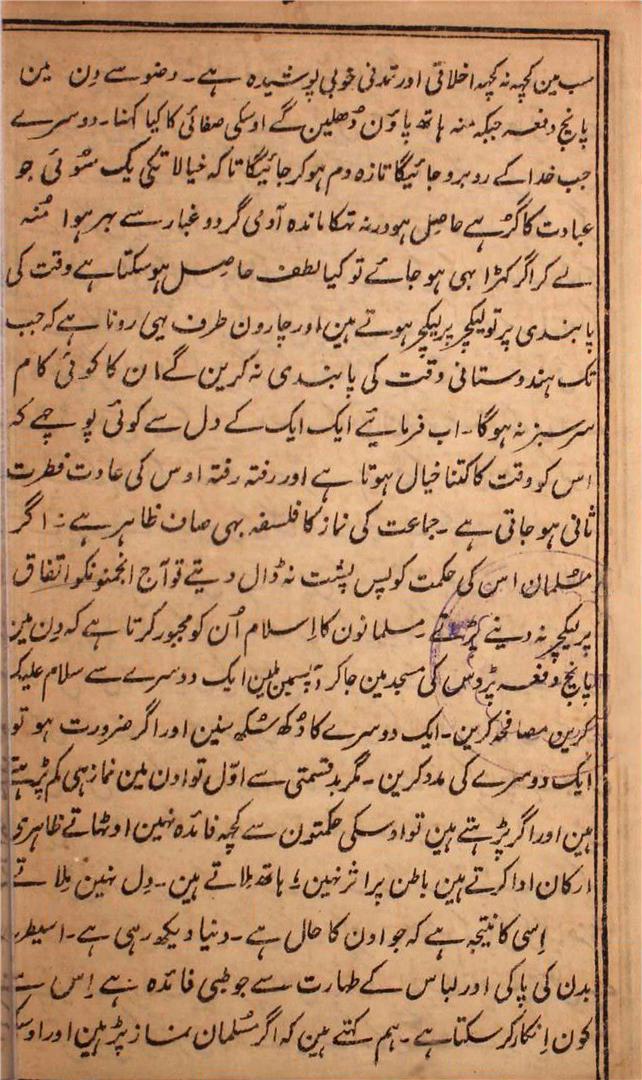 سب مین کچہہ نہ کچہہ اخلاقی اور تمدنی خوبی پوشیدہ ہے ۔ وضو سے دِن مین
پانچ دفعہ جبکہ منہ ہاتھ پاؤن دُھلین گے اوسکی صفائی کا کیا کہنا ۔ دوسرے
جب خدا کے روبرو جائیگا تازہ دم ہو کر جائیگا تاکہ خیالا تکی یک سُوئی جو
عبادت کا گُر ہے حاصِل ہو ورنہ تہکا ماندہ آدمی گرد و غبار سے بہر ہوا مُنہ
لے کر اگر کہڑا بہی ہو جائے تو کیا لطف حاصِل ہو سکتا ہے وقت کی
پابندی پر تو لیکچر پر لیکچر ہوتے ہین اور چارون طرف یہی رونا ہے کہ جب
تک ہندوستانی وقت کی پابندی نہ کرین گے ان کا کوئی کام
سرسبز نہ ہوگا ۔ اب فرمائیے ایک ایک کے دل سے کوئی پوچھے کہ
اس کو وقت کا کتنا خیال ہوتا ہے اور رفتہ رفتہ اوس کی عادت فطرت
ثانی ہو جاتی ہے ۔ جماعت کی نماز کا فلسفہ بہی صاف ظاہر ہے ۔ اگر
مُسلمان اس کی حکمت کو پس پشت نہ ڈال دیتے تو آج انجمنونکو اتفاق
پر لیکچر نہ دینے پڑتے ۔ مسلمانون کا اِسلام اُن کو مجبور کرتا ہے کہ دِن مین
پانچ دفعہ پڑوس کی مسجد مین جا کر آپسمین ملین ایک دوسرے سے سلام علیک
کرین مصافحہ کرین ۔ ایک دوسرے کا دُکھ سُکھ سنین اور اگر ضرورت ہو تو
ایک دوسرے کی مدد کرین ۔ مگر بدقسمتی سے اوّل تو اون مین نماز ہی کم پڑہتے
ہین اور اگر پڑہتے ہین تو اوسکی حکمتون سے کچہہ فائدہ نہین اوٹہاتے ظاہری
ارکان ادا کرتے ہین باطن پر اثر نہین ۔ ہاتھ مِلاتے ہین ۔ دِل نہین مِلاتے
اِسی کا نتیجہ ہے کہ جو اون کا حال ہے ۔ دنیا دیکھ رہی ہے ۔ اسیطرح
بدن کی پاکی اور لباس کے طہارت سے جو طبی فائدہ ہے اِس سے
کون اِنکار کر سکتا ہے ۔ ہم کہتے ہین کہ اگر مُسلمان نماز پڑہین اور اوسکی